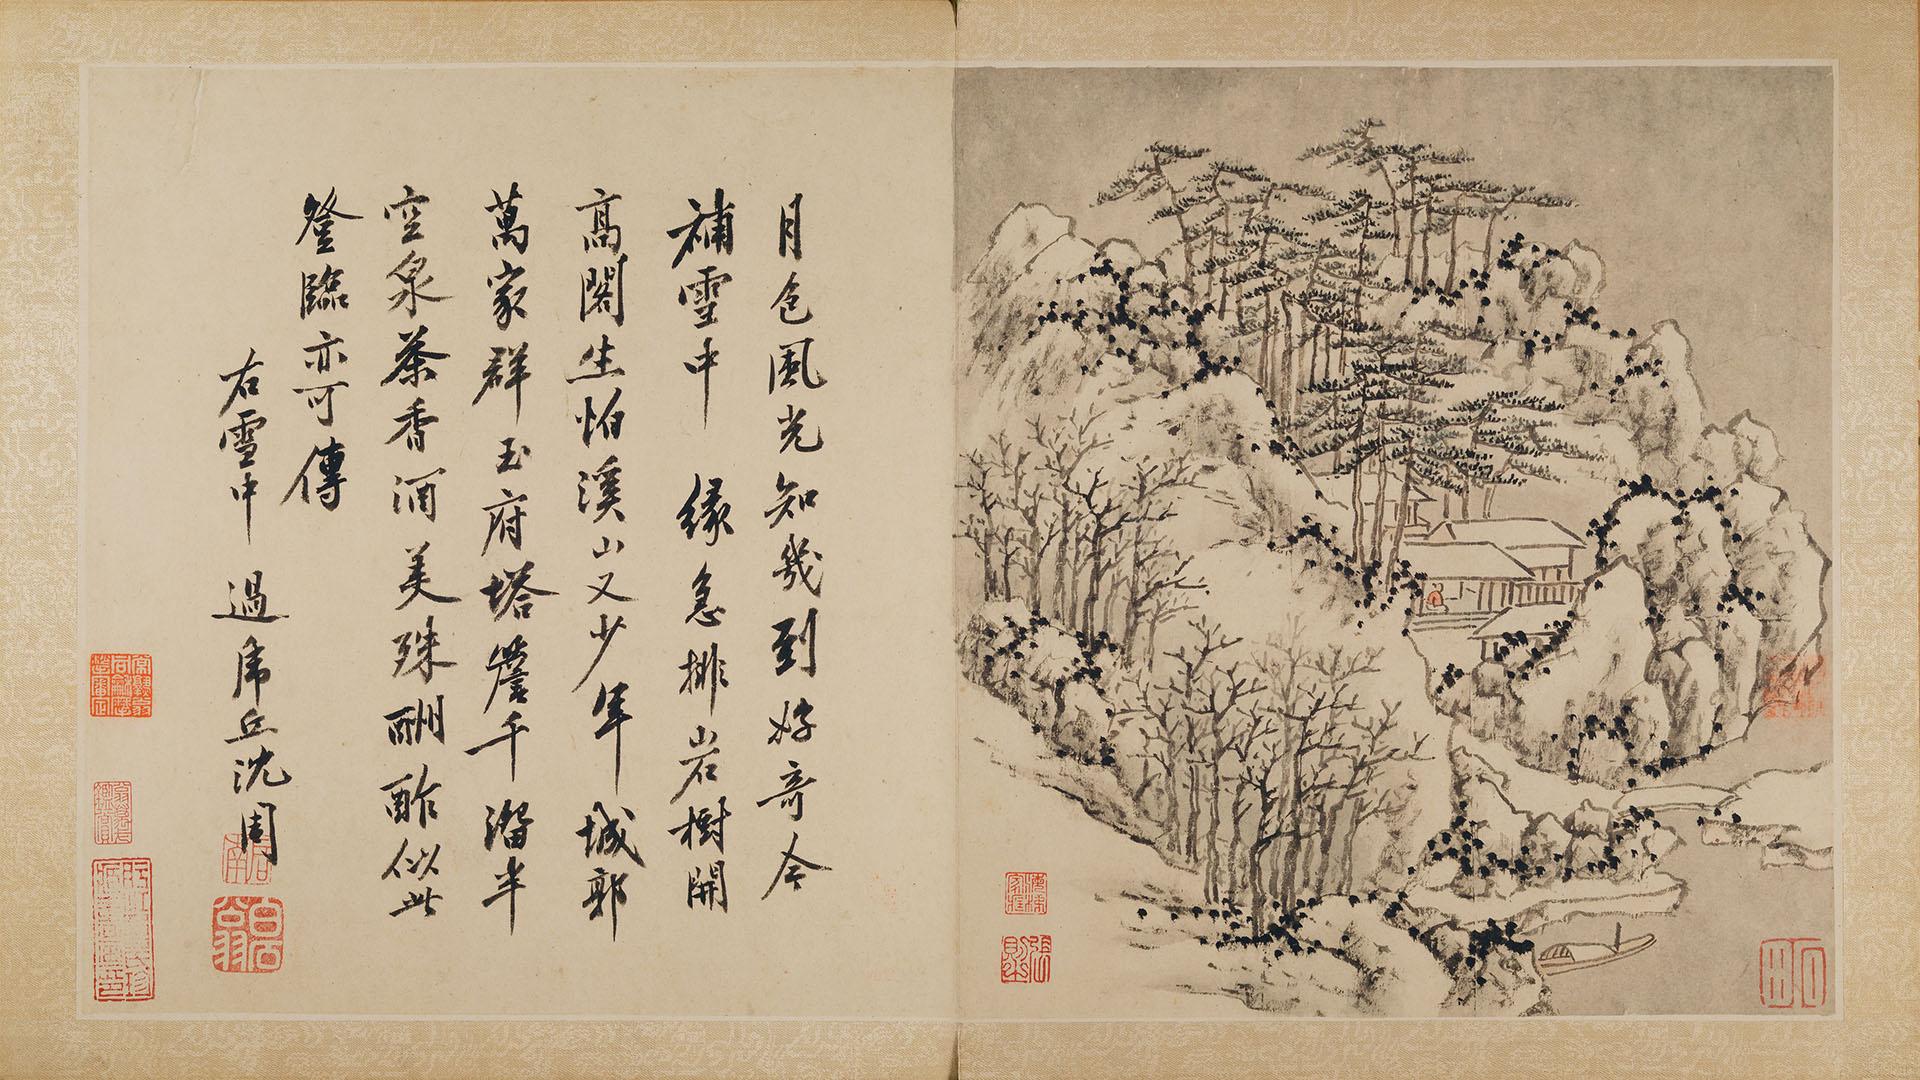 月色風光知幾到好奇今
補雪中緣急排岩樹開
高閣生怕溪山又少年城郭
萬家群玉府塔簷千溜半
空泉茶香酒美殊酬酢似此
登臨亦可傳
右雪中過虎丘沈周
啓南
白石翁
石田